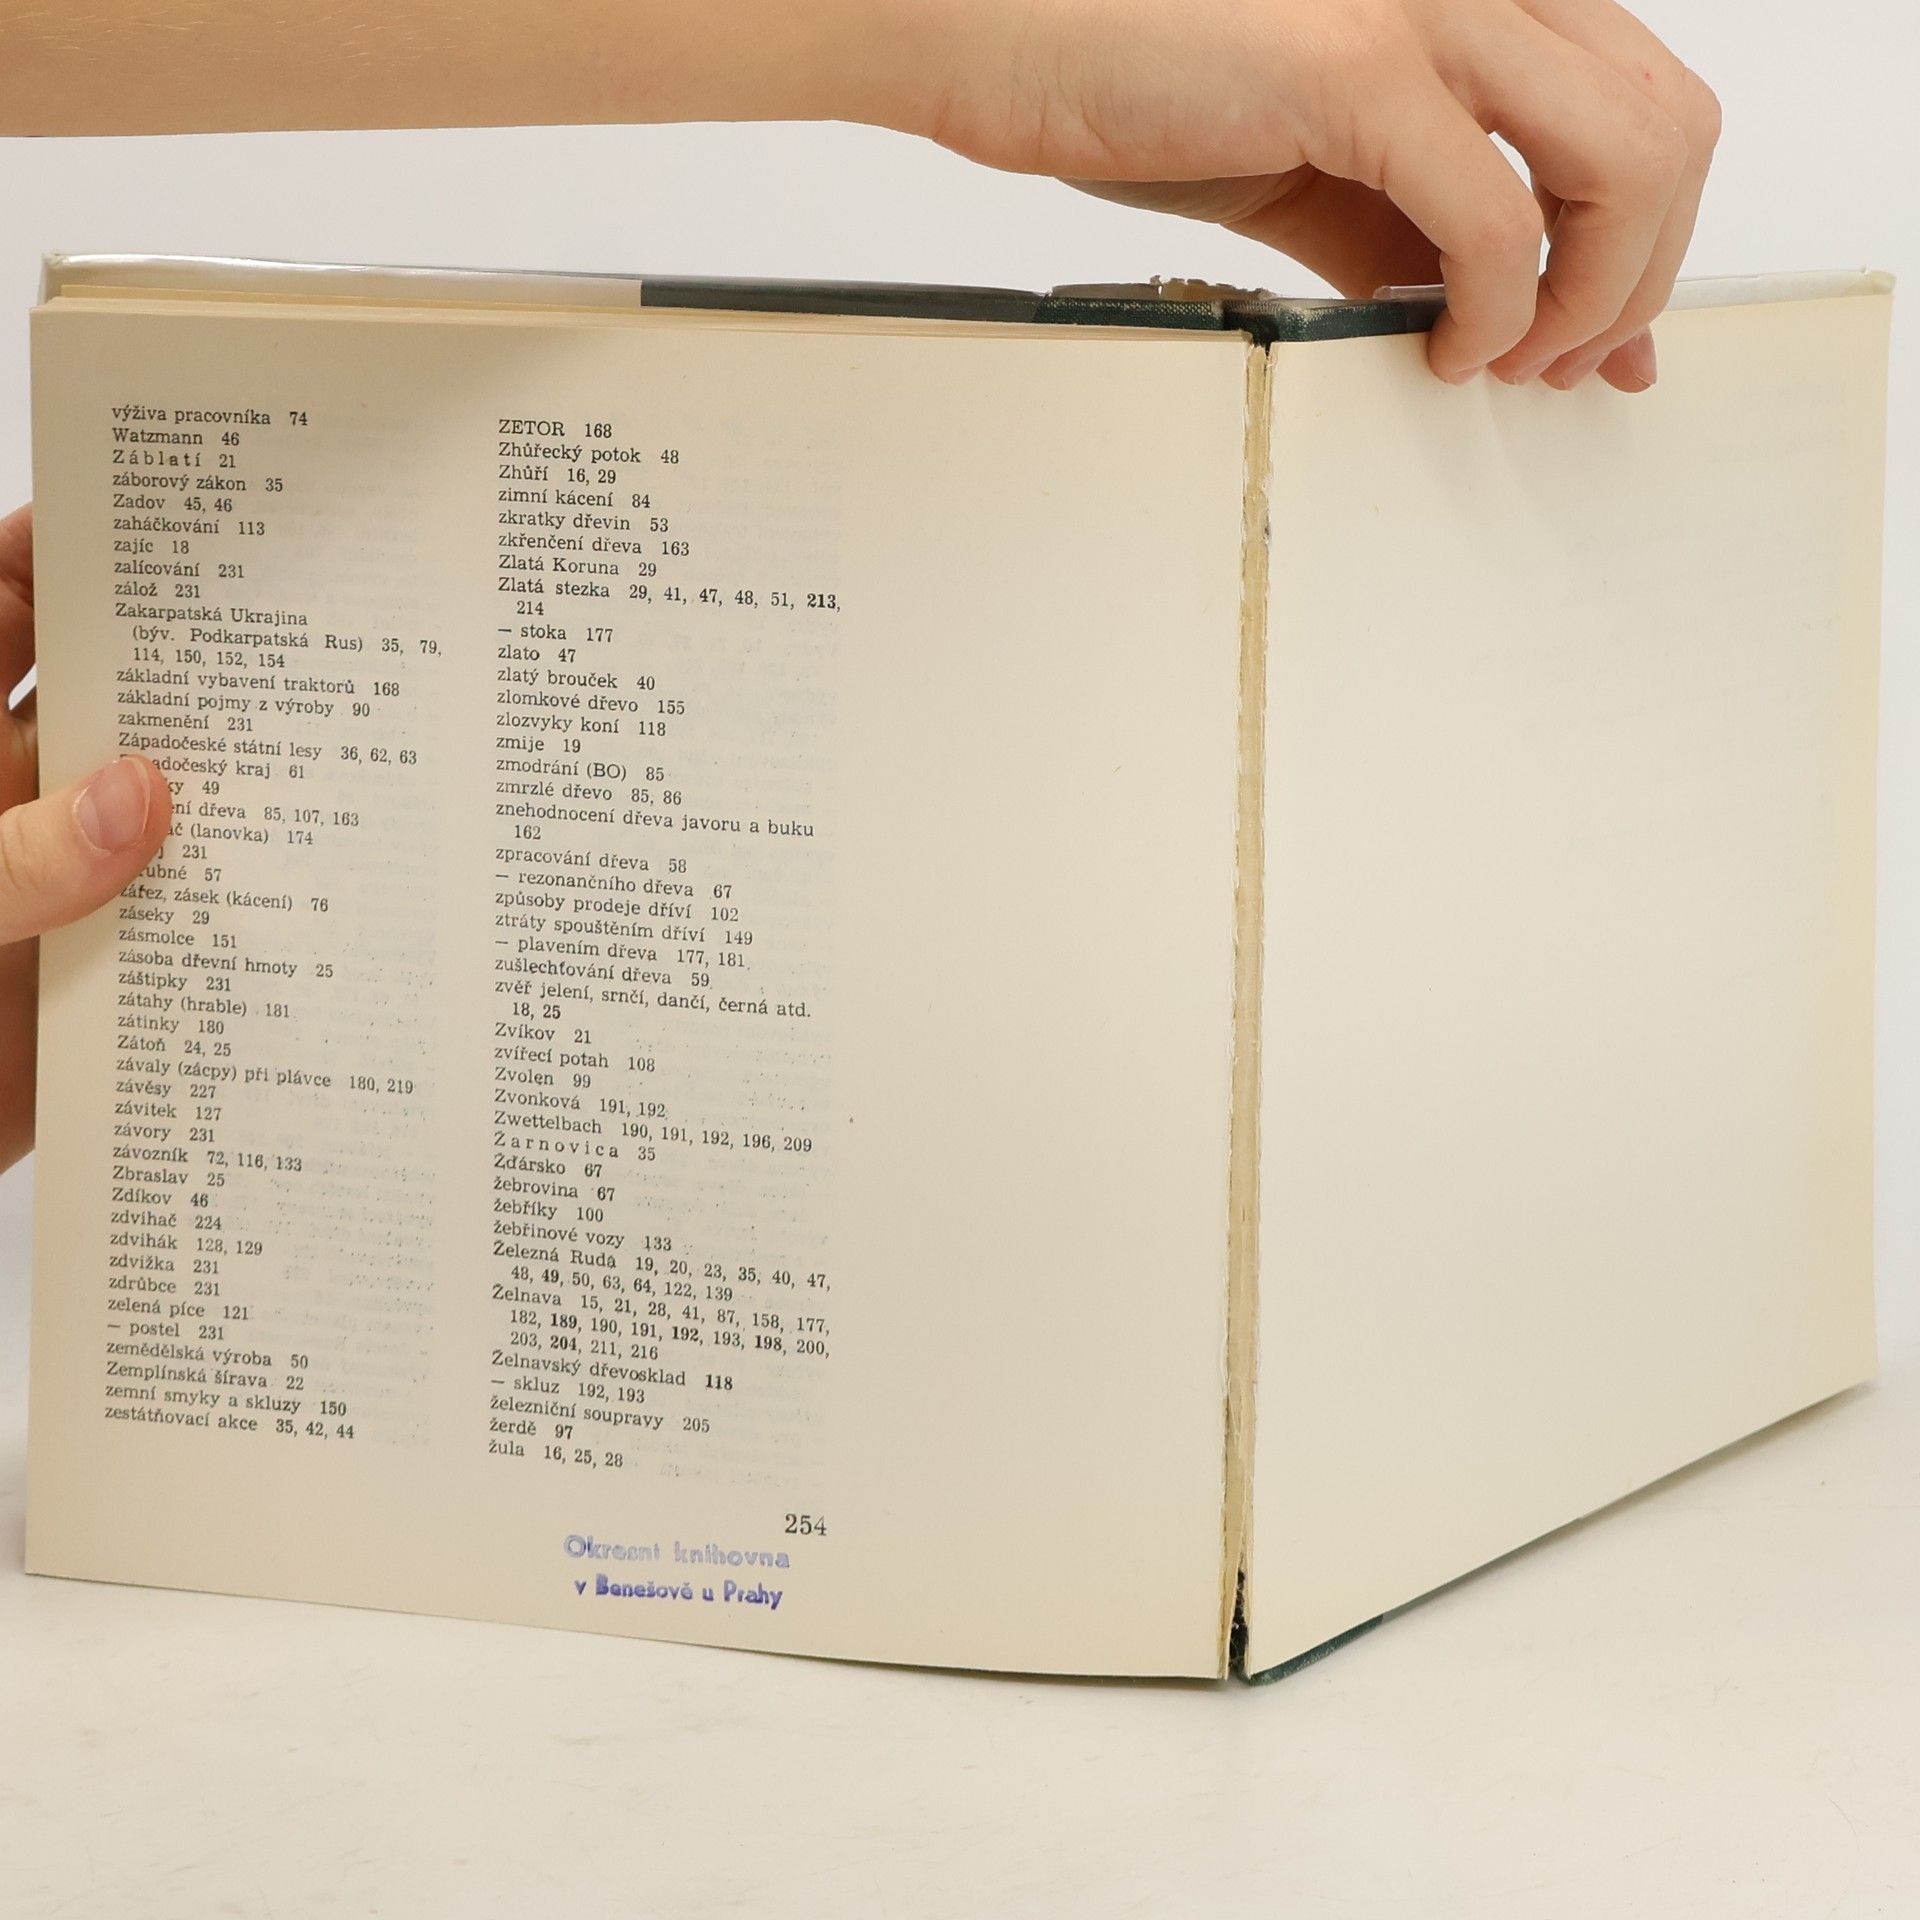 výživa pracovníka 74
Watzmann 46
Záblatí 21
záborový zákon 35
Zadov 45, 46
zaháčkování 113
zajíc 18
zalícování 231
zálož 231
Zakarpatská Ukrajina
(býv. Podkarpatská Rus) 35, 79,
114, 150, 152, 154
základní vybavení traktorů 168
základní pojmy z výroby 90
zakmenění 231
Západočeské státní lesy 36, 62, 63
adočeský kraj 61
ky 49
ení dřeva 85, 107, 163
ač (lanovka) 174
j 231
rubné 57
zářez, zásek (kácení) 76
záseky 29
zásmolce 151
zásoba dřevní hmoty 25
záštipky 231
zátahy (hrable) 181
zátinky 180
Zátoň 24, 25
závaly (zácpy) při plávce 180, 219
závěsy 227
závitek 127
závory 231
závozník 72, 116, 133
Zbraslav 25
Zdíkov 46
zdvihač 224
zdvihák 128, 129
zdvižka 231
zdrůbce 231
zelená píce 121
— postel 231
zemědělská výroba 50
Zemplínská šírava 22
zemní smyky a skluzy 150
zestátňovací akce 35, 42, 44
ZETOR 168
Zhůřecký potok 48
Zhůří 16, 29
zimní kácení 84
zkratky dřevin 53
zkřenčení dřeva 163
Zlatá Koruna 29
Zlatá stezka 29, 41, 47, 48, 51, 213,
214
— stoka 177
zlato 47
zlatý brouček 40
zlomkové dřevo 155
zlozvyky koní 118
zmije 19
zmodrání (BO) 85
zmrzlé dřevo 85, 86
znehodnocení dřeva javoru a buku
162
zpracování dřeva 58
— rezonančního dřeva 67
způsoby prodeje dříví 102
ztráty spouštěním dříví 149
— plavením dřeva 177, 181
zušlechťování dřeva 59
zvěř jelení, srnčí, dančí, černá atd.
18, 25
Zvíkov 21
zvířecí potah 108
Zvolen 99
Zvonková 191, 192
Zwettelbach 190, 191, 192, 196, 209
Žarnovica 35
Žďársko 67
žebrovina 67
žebříky 100
žebřinové vozy 133
Železná Ruda 19, 20, 23, 35, 40, 47,
48, 49, 50, 63, 64, 122, 139
Želnava 15, 21, 28, 41, 87, 158, 177,
182, 189, 190, 191, 192, 193, 198, 200,
203, 204, 211, 216
Želnavský dřevosklad 118
— skluz 192, 193
železniční soupravy 205
žerdě 97
žula 16, 25, 28
254
Okresní knihovna
v Benešově u Prahy